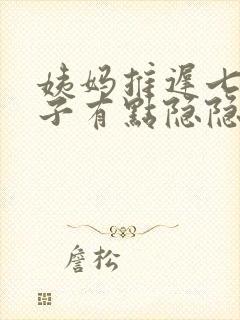 姨妈推遲七
子有點隐隐
詹松